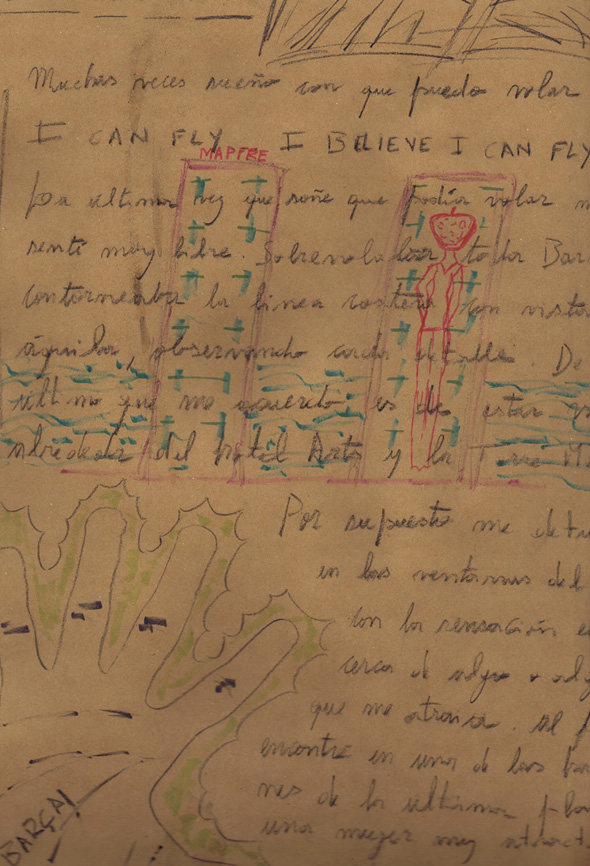 Muchas veces sueño con que puedo volar
I CAN FLY I BELIEVE I CAN FLY
MAPFRE
La ultima vez que soñe que podia volar m
senti muy libre. Sobrevola toda Bar
contorneaba la linea costera con vista
aguila, observando cada detalle. De
ultimo que me acuerdo, es de estar
alrededor del hotel Arts y la Torre M
Por supuesto me detu
en las ventanas del
con la sensación e
cerca de algo o alg
que me atraia. Al f
encontre en uno de los ba
nes de la ultima pla
una mujer muy atract
BARÇA!